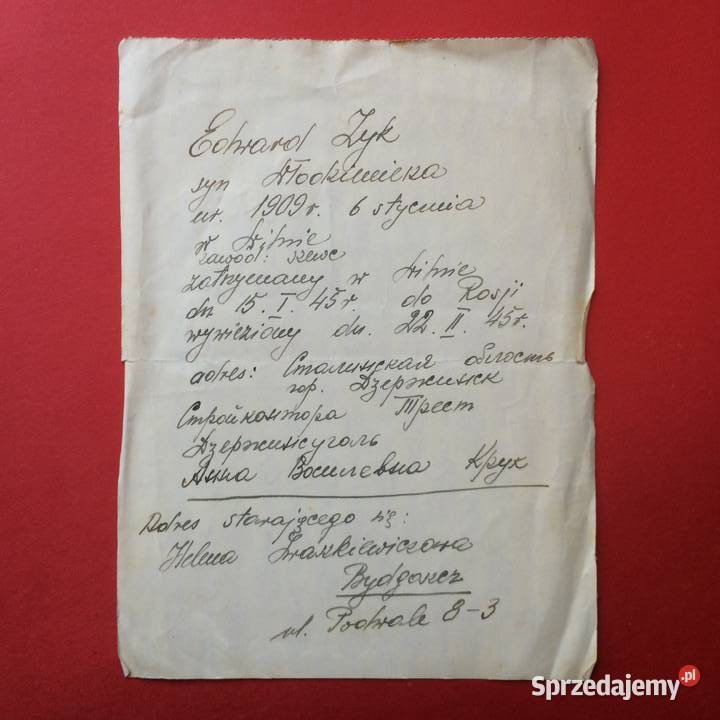 Edward Zyk
syn Włodzimierza
ur. 1909 r. 6 stycznia
w Wilnie
zawód: szewc
zatrzymany w Wilnie
dn 15. I. 45 r. do Rosji
wywieziony dn. 22. II. 45 r.
adres: Сталинская область
гор. Дзержинск
Стройконтора Трест
Дзержинскуголь
Анна Василевна Крук
Adres starającego się:
Helena
Bydgoszcz
ul. Podwale 8-3
Sprzedajemy.pl